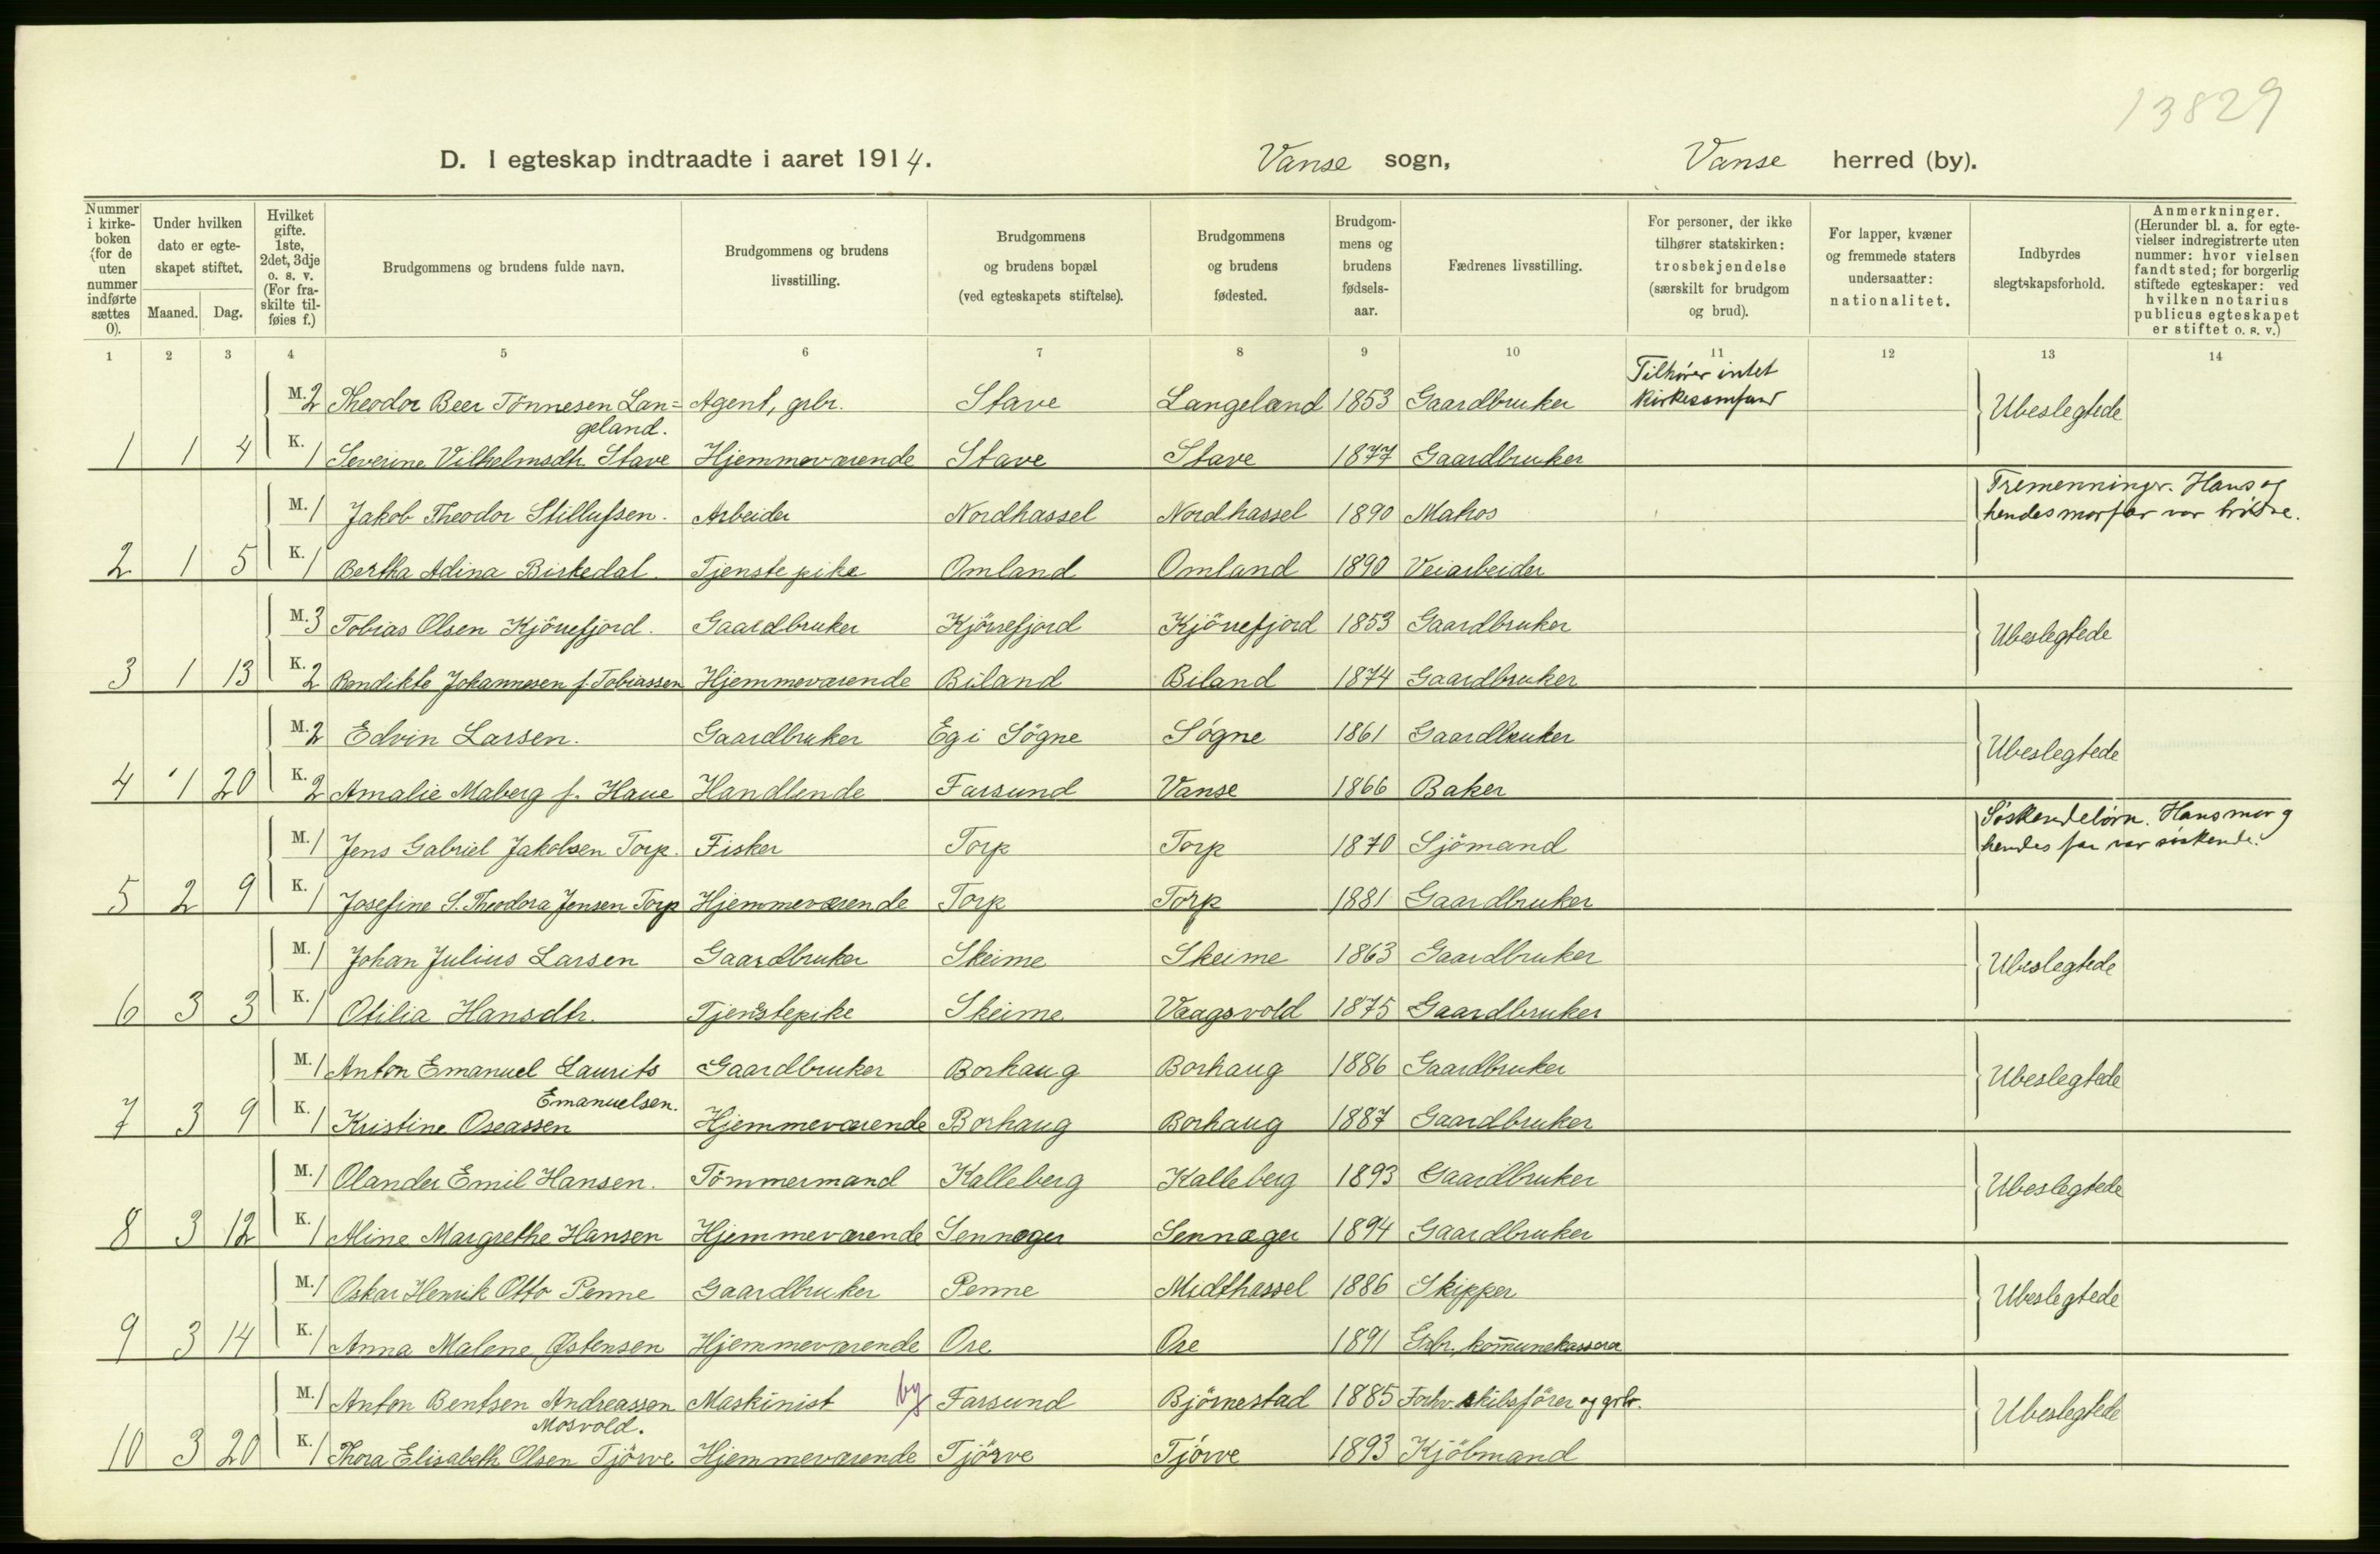 13829
D. I egteskap indtraadte i aaret 1914. Vanse sogn, Vanse herred (by).
Nummer i kirkeboken (for de uten nummer indførte sættes 0). Under hvilken dato er egteskapet stiftet. Maaned. Dag. Hvilket gifte. 1ste, 2det, 3dje o. s. v. (For fraskilte tilføies f.) Brudgommens og brudens fulde navn. Brudgommens og brudens livsstilling. Brudgommens og brudens bopæl (ved egteskapets stiftelse). Brudgommens og brudens fødested. Brudgommens og brudens fødselsaar. Fædrenes livsstilling. For personer, der ikke tilhører statskirken: trosbekjendelse (særskilt for brudgom og brud). For lapper, kvæner og fremmede staters undersaatter: nationalitet. Indbyrdes slegtskapsforhold. Anmerkninger. (Herunder bl. a. for egtevielser indregistrerte uten nummer: hvor vielsen fandt sted; for borgerlig stiftede egteskaper: ved hvilken notarius publicus egteskapet er stiftet o. s. v.)
1 2 3 4 5 6 7 8 9 10 11 12 13 14
M. 2 Theodor Beer Tönnesen Langeland. Agent, grbr. Stave Langeland 1853 Gaardbruker Tilhører intet kirkesamfund Ubeslegtede
1 1 4 K. 1 Severine Vilhelmsdtr. Stave Hjemmeværende Stave Stave 1877 Gaardbruker
M. 1 Jakob Theodor Stillufsen. Arbeider Nordhassel Nordhassel 1890 Matros Tremenninger. Hans og hendes morfar var brödre.
2 1 5 K. 1 Bertha Adina Birkedal. Tjenstepike Omland Omland 1890 Veiarbeider
M. 3 Tobias Olsen Kjörrefjord. Gaardbruker Kjörrefjord Kjörrefjord 1853 Gaardbruker Ubeslegtede
3 1 13 K. 2 Bendikte Johannesen f. Tobiassen Hjemmeværende Biland Biland 1874 Gaardbruker
M. 2 Edvin Larsen. Gaardbruker Eg i Sögne Sögne 1861 Gaardbruker Ubeslegtede
4 1 20 K. 2 Amalie Maberg f. Haue Handlende Farsund Vanse 1866 Baker
M. 1 Jens Gabriel Jakobsen Torp. Fisker Torp Torp 1870 Sjömand Söskendebörn. Hans mor og hendes far var söskende.
5 2 9 K. 1 Josefine S. Theodora Jensen Torp Hjemmeværende Torp Torp 1881 Gaardbruker
M. 1 Johan Julius Larsen Gaardbruker Skeime Skeime 1863 Gaardbruker Ubeslegtede
6 3 3 K. 1 Otilia Hansdtr. Tjenstepike Skeime Vaagsvold 1875 Gaardbruker
M. 1 Anton Emanuel Laurits Emanuelsen. Gaardbruker Borhaug Borhaug 1886 Gaardbruker Ubeslegtede
7 3 9 K. 1 Kristine Oseassen Hjemmeværende Borhaug Borhaug 1887 Gaardbruker
M. 1 Olander Emil Hansen. Tömmermand Kalleberg Kalleberg 1893 Gaardbruker Ubeslegtede
8 3 12 K. 1 Aline Margrethe Hansen Hjemmeværende Sennager Sennager 1894 Gaardbruker
M. 1 Oskar Henrik Otto Penne Gaardbruker Penne Midthassel 1886 Skipper Ubeslegtede
9 3 14 K. 1 Anna Malene Østensen Hjemmeværende Ore Ore 1891 Grbr. kommunekasserer
M. 1 Anton Bentsen Andreassen Mosvold. Maskinist by Farsund Björnestad 1885 Forhv. skibsförer og grbr. Ubeslegtede
10 3 20 K. 1 Thora Elisabeth Olsen Tjörve Hjemmeværende Tjörve Tjörve 1893 Kjöbmand